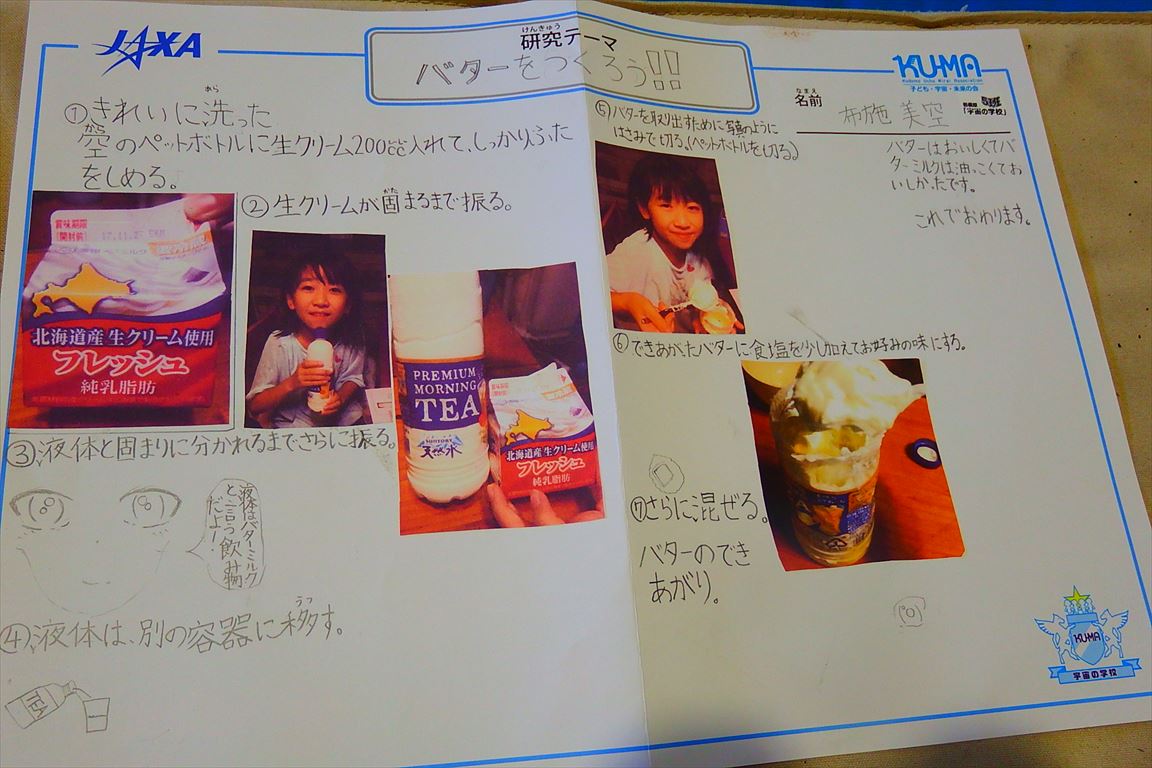 JAXA
けんきゅう
研究テーマ
バターをつくろう!!
KU-MA
Kodomo Uchu Mirai Association
子ども・宇宙・未来の会
なまえ
名前
布施 美空
「宇宙の学校」
①きれいに洗った
あら
空のペットボトルに生クリーム200cc入れて、しっかりふた
をしめる。
賞味期限
開封前
17.11.2
北海道産 生クリーム使用
フレッシュ
純乳脂肪
②生クリームが固まるまで振る。
かた
PREMIUM
MORNING
TEA
SUNTORY
天然水
北海道産 生クリーム使用
フレッシュ
純乳脂肪
③液体と固まりに分かれるまでさらに振る。
液体はバターミルク
と言う飲み物
だよー!
④液体は、別の容器に移す。
うつ
TEA
⑤バターを取り出すために写真のように
はさみで切る。(ペットボトルを切る)
⑥できあがたバターに食塩を少し加えてお好みの味にする。
⑦さらに混ぜる。
バターのでき
あがり。
バターはおいしくてバ
ターミルクは油っこくてお
いしかったです。
これでおわります。
KU-MA
宇宙の学校